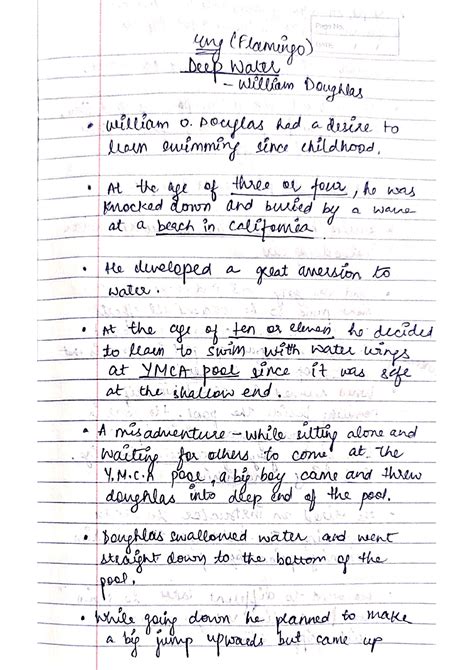 (Flamingo)
Deep Water
- William Doughlas
• William O. Docyglas had a desire to
learn swimming since childhood.
• At the age of three or four, he was
knocked down and buried by a wave
at a beach in California
• He developed a great aversion to
water.
• At the age of ten or eleven he decided
to learn to swim with water wings
at YMCA pool since it was safe
at the shallow end.
• A misadventure - while sitting alone and
waiting for others to come at the
Y.M.C.A pool, a big boy came and threw
doughlas into deep end of the pool.
• Doughlas swallowed water and went
straight down to the bottom of the
pool.
• While going down he planned to make
a big jump upwards but came up